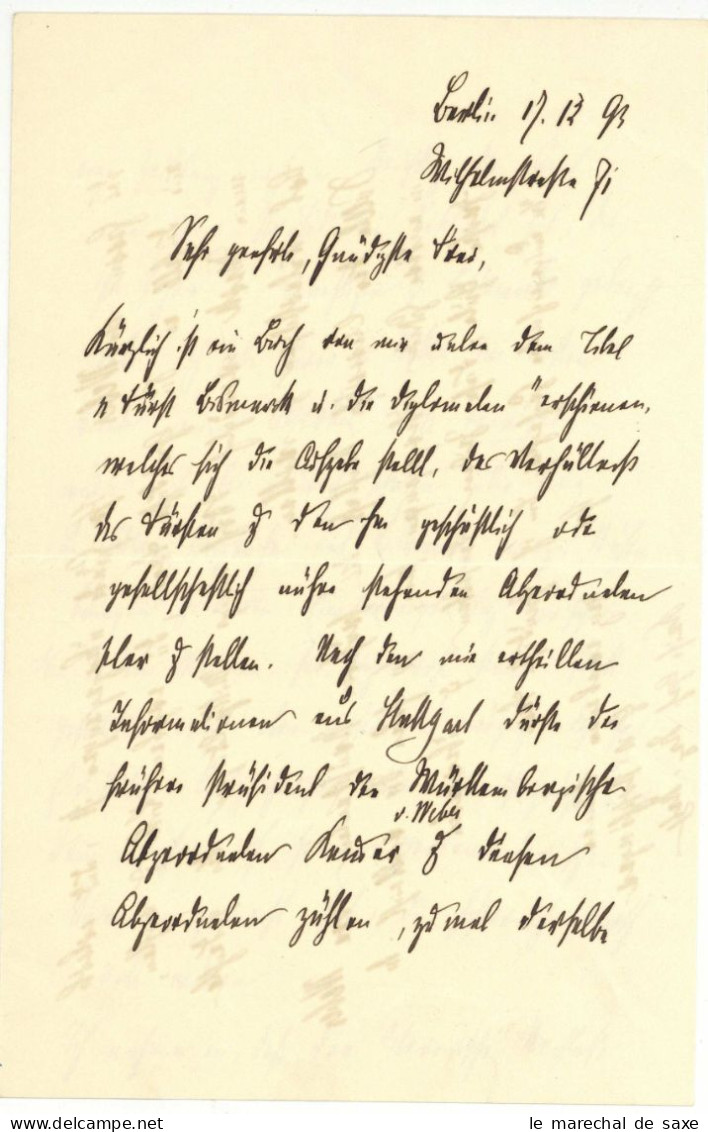 Berlin 17. 12 93
Wilhelmstraße 71
Sehr geehrte, Gnädigste Frau,
Kürzlich ist ein Buch von mir unter dem Titel
"Fürst Bismarck u. die Diplomaten" erschienen,
welches sich die Aufgabe stellt, das Verhältniß
des Fürsten zu den ihm geschäftlich oder
gesellschaftlich näher stehenden Abgeordneten
klar zu stellen. Nach den mir ertheilten
Informationen aus Stuttgart dürfte der
frühere Präsident der Württembergischen
v. Weber
Abgeordneten Kammer zu diesen
Abgeordneten zählen, zumal derselbe
le marechal de saxe